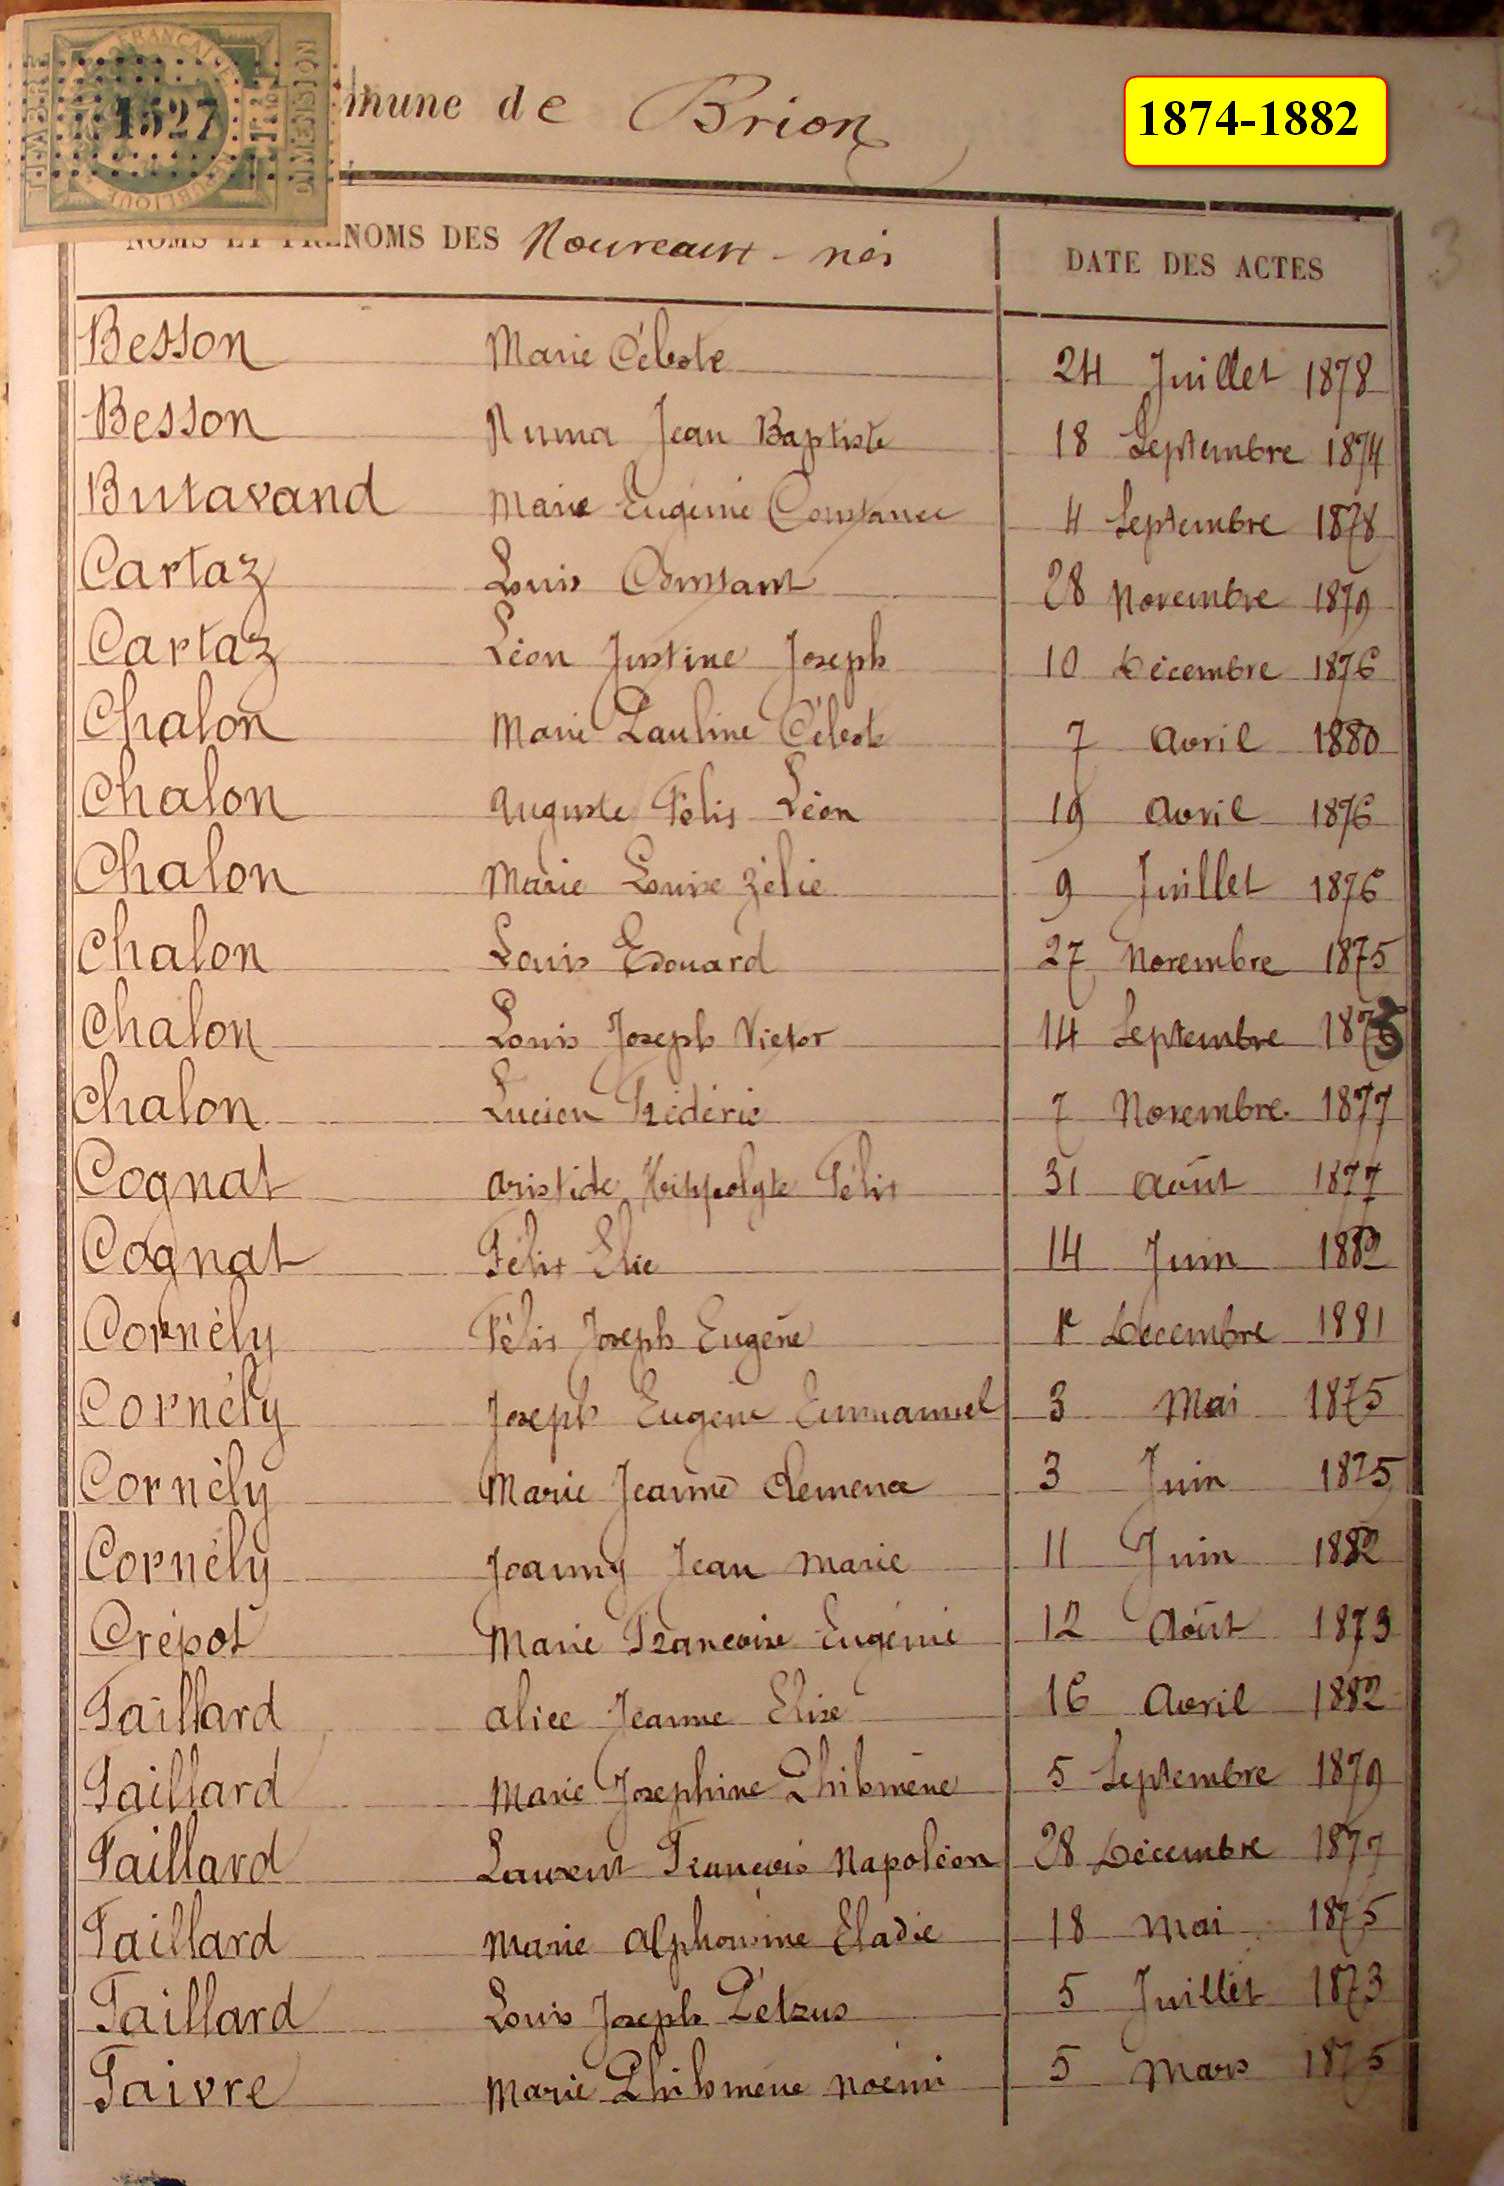 TIMBRE
FRANÇAISE
1527
DIMENSION
RÉPUBLIQUE
mune de Brion
1874-1882
NOMS ET PRÉNOMS DES Nouveaux-nés DATE DES ACTES
3
Besson Marie Céleste 24 Juillet 1878
Besson Numa Jean Baptiste 18 Septembre 1874
Butavand Marie Eugénie Constance 4 Septembre 1878
Cartaz Louis Constant 28 Novembre 1879
Cartaz Léon Justine Joseph 10 Décembre 1876
Chalon Marie Pauline Céleste 7 Avril 1880
Chalon Auguste Félix Léon 19 Avril 1876
Chalon Marie Louise Zélie 9 Juillet 1876
Chalon Louis Edouard 27 Novembre 1875
Chalon Louis Joseph Victor 14 Septembre 1875
Chalon Lucien Frédéric 7 Novembre 1877
Cognat Aristide Hippolyte Félix 31 Août 1877
Cognat Félix Elie 14 Juin 1882
Cornély Félix Joseph Eugène 1r Décembre 1881
Cornély Joseph Eugène Emmanuel 3 Mai 1875
Cornély Marie Jeanne Clemence 3 Juin 1875
Cornély Joanny Jean Marie 11 Juin 1882
Crépot Marie Francoise Eugénie 12 Août 1873
Faillard Alice Jeanne Elise 16 Avril 1882
Faillard Marie Josephine Philomène 5 Septembre 1879
Faillard Laurent Francois Napoléon 28 Décembre 1877
Faillard Marie Alphonsine Eladie 18 Mai 1875
Faillard Louis Joseph Pétrus 5 Juillet 1873
Faivre Marie Philomène Noémi 5 Mars 1875